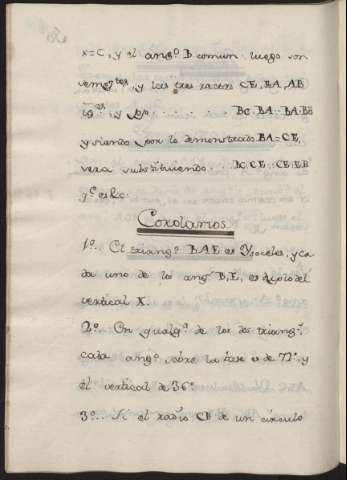 x=C, y el ang.º B comun luego son
semej.tes, y las tres rectas CE, EA, AB
ig.es y p.º ........ BC.BA::BA.BE
y siendo por lo demonstrado BA=CE,
sera substituiendo .... BC.CE::CE.EB
q.e es &c.
Corolarios
1º.. El triang.º BAE es Ysoceles, y ca
da uno de los ang.s B, E, es duplo del
vertical X.
2º.. En qualq.a de los dos triang.s
cada ang.º sobre la base es de 72º. y
el vertical de 36º
3º.. Si el radio CB de un circulo